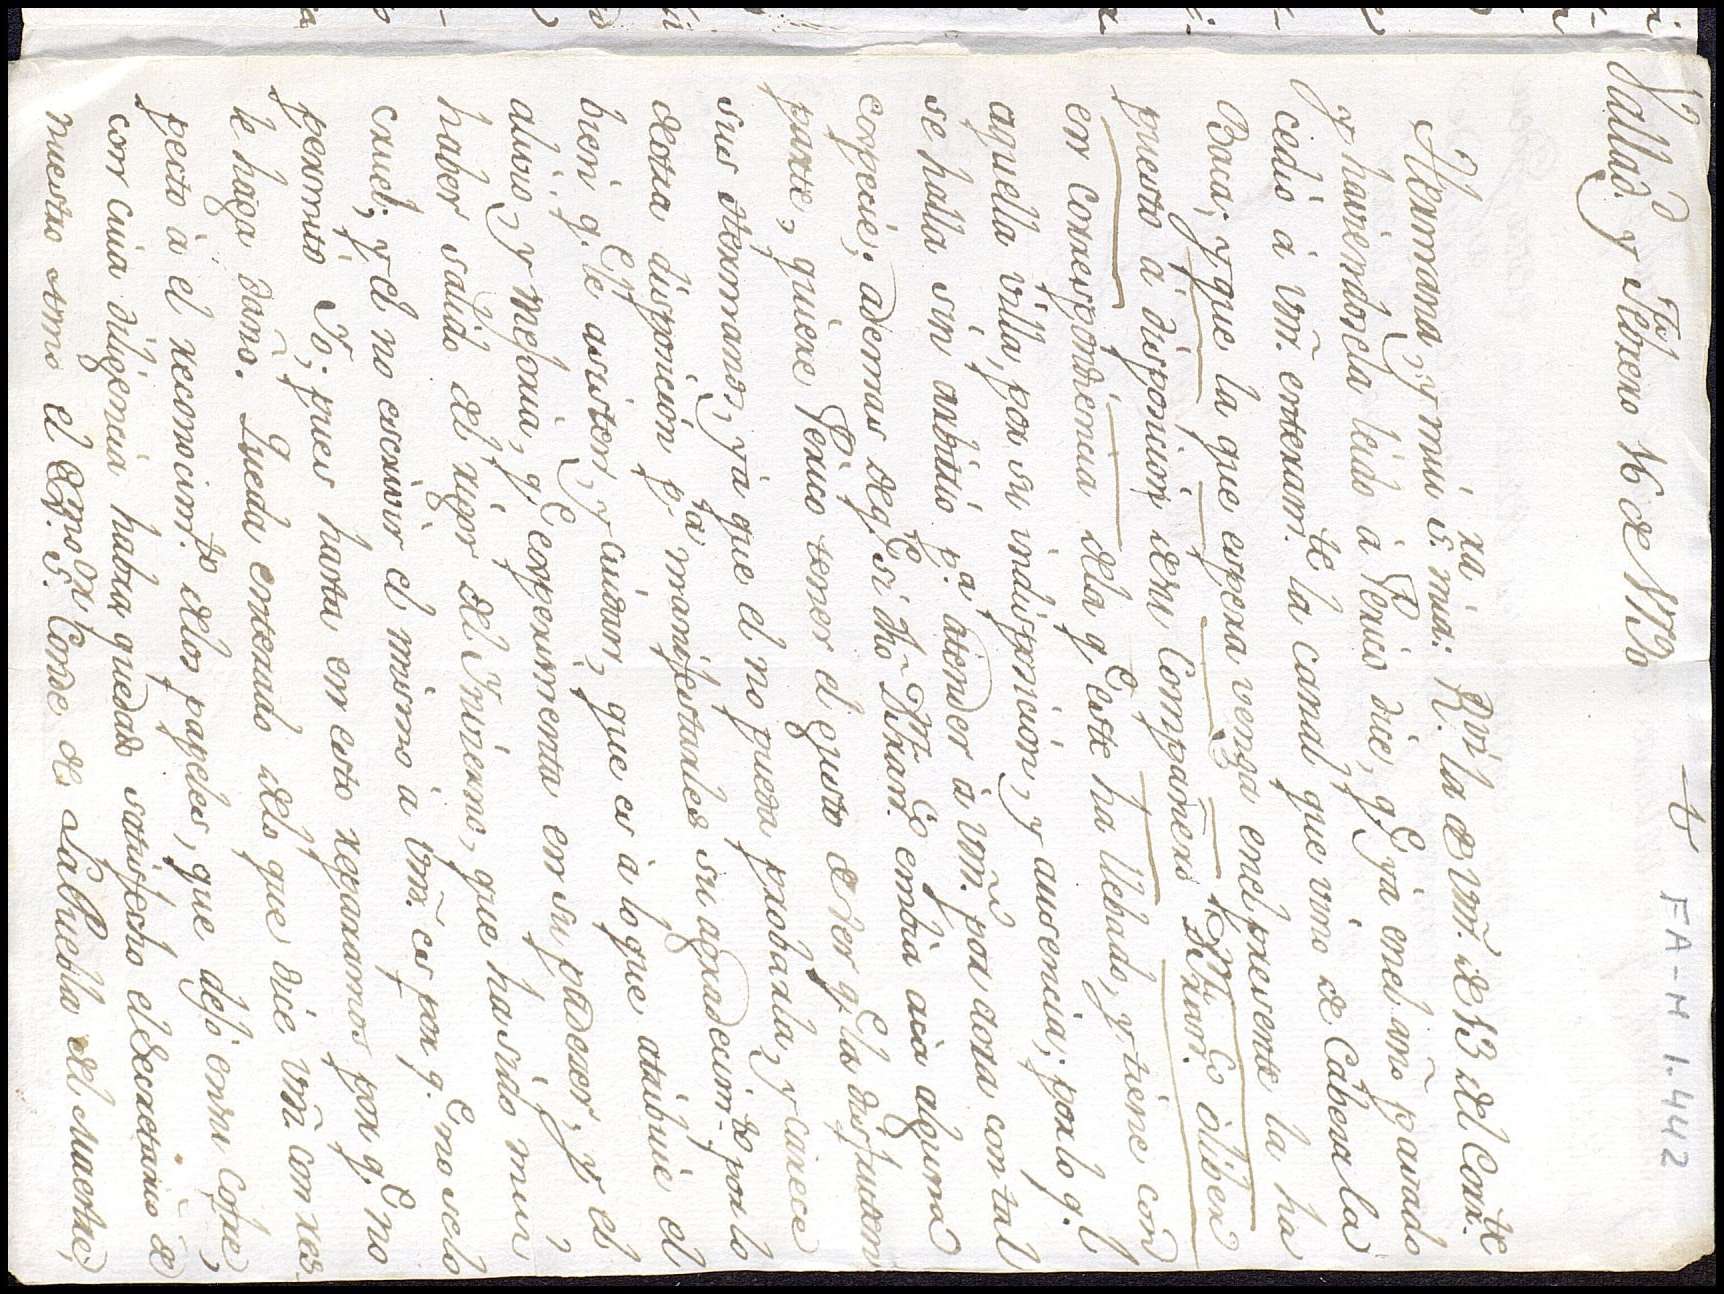 t
FA-N 1.442
Vallad.d y Febrero 16 de 1780
Hermana, y mui s.ra mia: Rvi la de vm̃. de 13 del Corr.te
y haviendosela leido à Perico dice, q.e ya enel año pasado
cedió á vm̃. enteram.te la canal que vino de Cabeza la
Baca, y que la que espera venga enel presente la ha
puesto à disposicion desu Compañero D.n M.l Fran.co Oliber
en correspondencia dela q.e este ha llebado, y tiene con
aquella villa, por su indisposicion, y ausencia; por lo q.l
se halla sin arbitrio p.a atender à vm̃. por aora con tal
especie; ademas deq.e si dho D.n Fran.co embia acia alguna
parte, quiere Perico tener el gusto de ver q.e la disfruten
sus Hermanos, yà que el no pueda probarla, y carece
desta disposicion p.a manifestarles su agradecim.to por lo
bien q.e le asisten, y cuidan, que es à lo que atribuie el
alivio, y mejoria, q.e experimenta en su padecer, y el
haber salido del rigor del Invierno, que ha sido mui
cruel; y el no escrivir el mismo à vm̃. es por q.e no selo
permito Yo; pues hasta en esto reparamos por q.e no
le haga daño. Queda enterado delo que dice vm̃. con res-
pecto à el reconocim.to delos papeles, que dejó ensu cofre,
con cuia diligencia habrà quedado satisfecho el Secretario de
nuestro Amo el Exmo S.or Conde de la Puebla del Maestre,